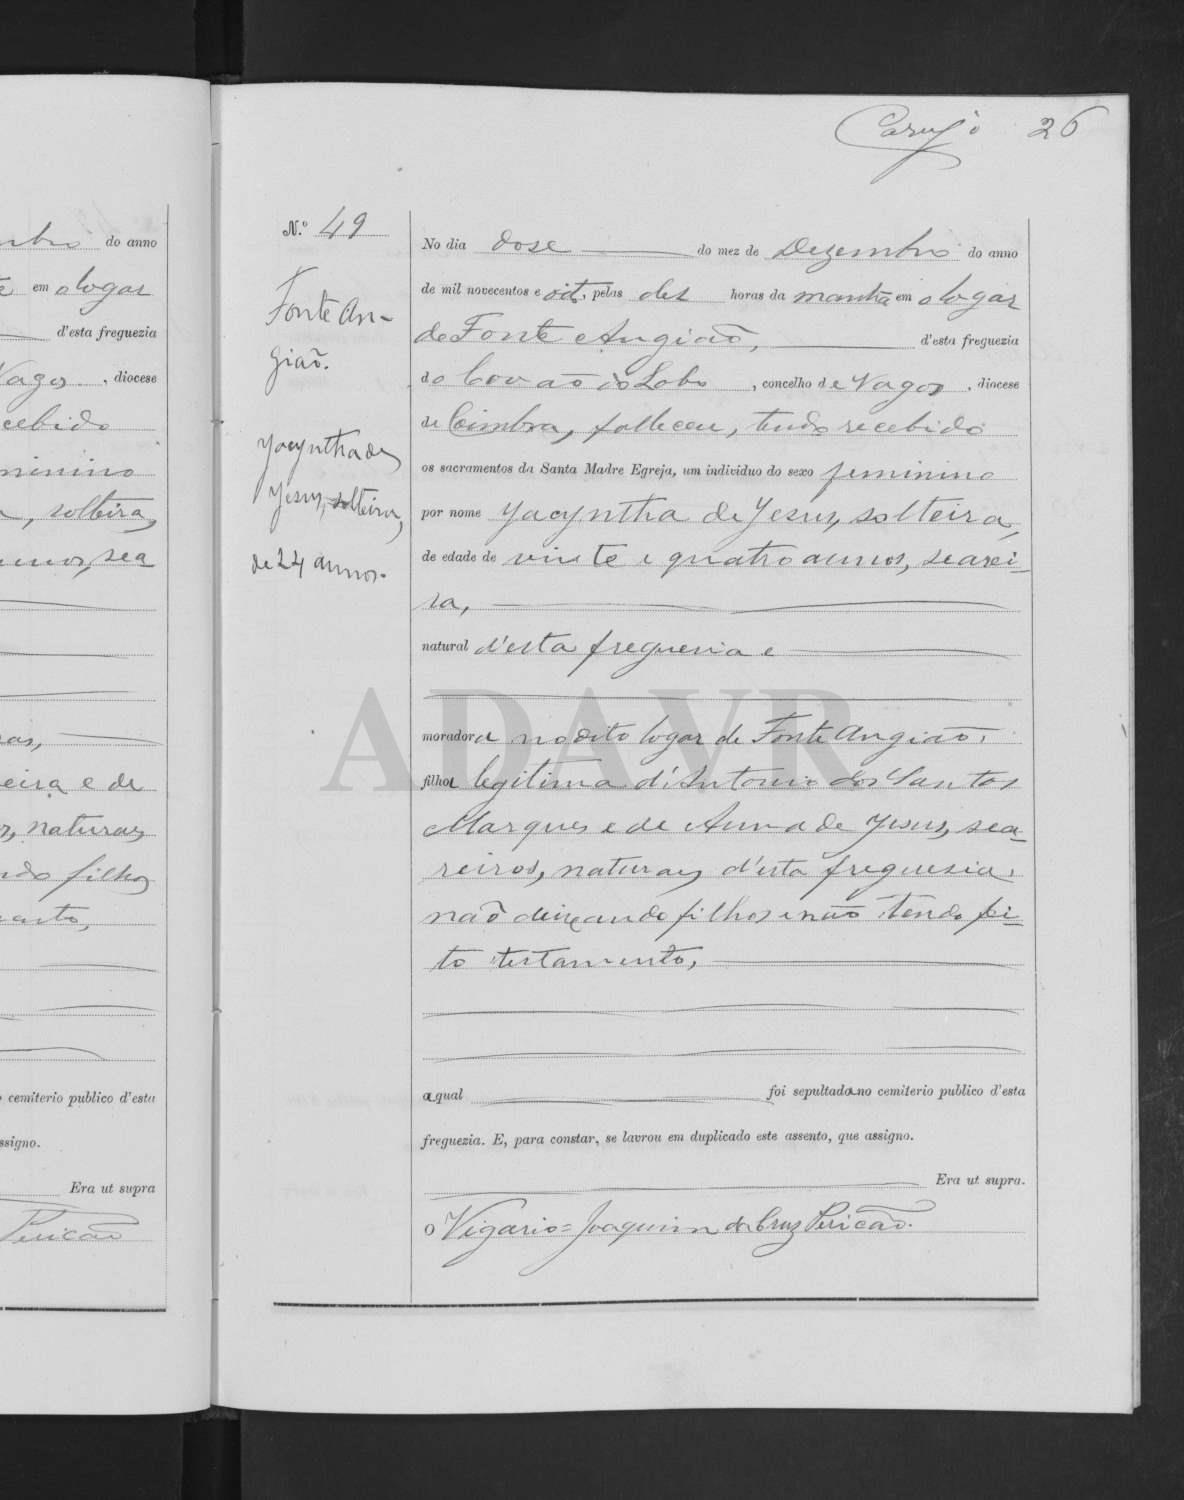 26
do anno
em o logar
d'esta freguezia
Vagos, diocese
recebido
feminino
, solteira,
annos, sea
eira e de
, naturaes
ndo filhos
cemiterio publico d'esta
assigno.
Era ut supra
Pericão
N.º 49
Fonte An-
gião.
Jacyntha de
Jesus, solteira,
de 24 annos.
No dia dose do mez de Dezembro do anno
de mil novecentos e oito, pelas dez horas da manhã em o logar
de Fonte Angião, d'esta freguezia
do Covão do Lobo, concelho de Vagos, diocese
de Coimbra, falleceu, tendo recebido
os sacramentos da Santa Madre Egreja, um individuo do sexo feminino
por nome Jacyntha de Jesus, solteira,
de edade de vinte e quatro annos, searei-
ra,
natural d'esta freguesia e
moradora no dito logar de Fonte Angião,
filha legitima d'Antonio dos Santos
Marques e de Anna de Jesus, sea-
reiros, naturaes d'esta freguesia,
não deixando filhos e não tendo fei-
to testamento,
a qual foi sepultada no cemiterio publico d'esta
freguezia. E, para constar, se lavrou em duplicado este assento, que assigno.
Era ut supra.
O Vigario = Joaquim da Cruz Pericão.
ADAVR